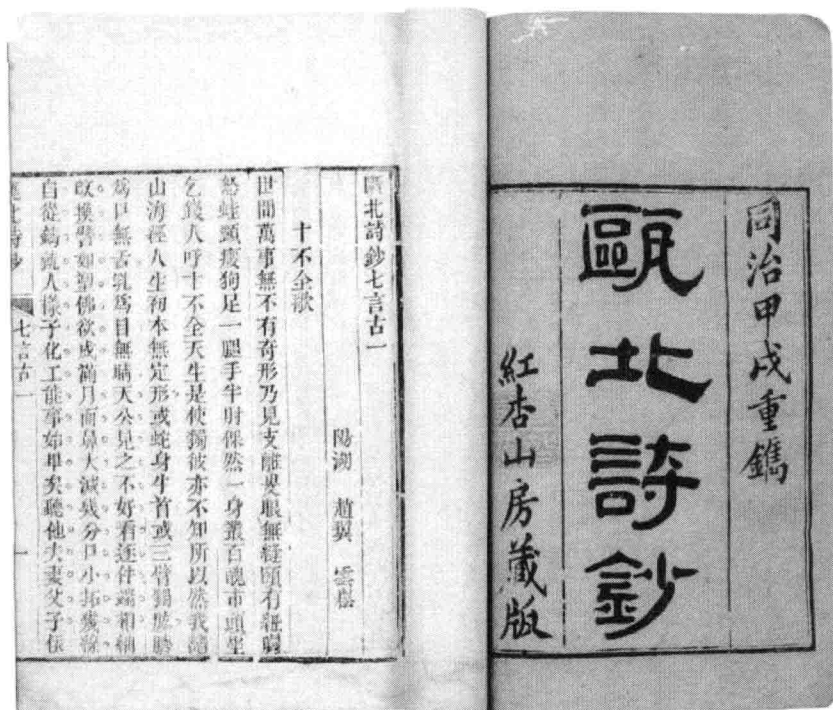 同治甲戌重鐫
甌北詩鈔
紅杏山房藏版
甌北詩鈔七言古一
陽湖 趙翼 雲崧
十不全歌
世間萬事無不有奇形乃見支離叟眼無縫頤有
怒蛙頭瘦狗足一腿手半肘傫然一身叢百醜市頭坐
乞錢人呼十不全天生是使獨彼亦不知所以然我讀
山海經人生初本無定形或蛇身牛首或三臂獨
為口無舌乳為目無睛天公見之不好看逐件端相稱
改換譬如塑佛欲成滿月面鼻大減幾分口小拓幾線
自從鑄就人樣子化工能事始畢矣聽他夫妻父子
甌北詩鈔 七言古一 一